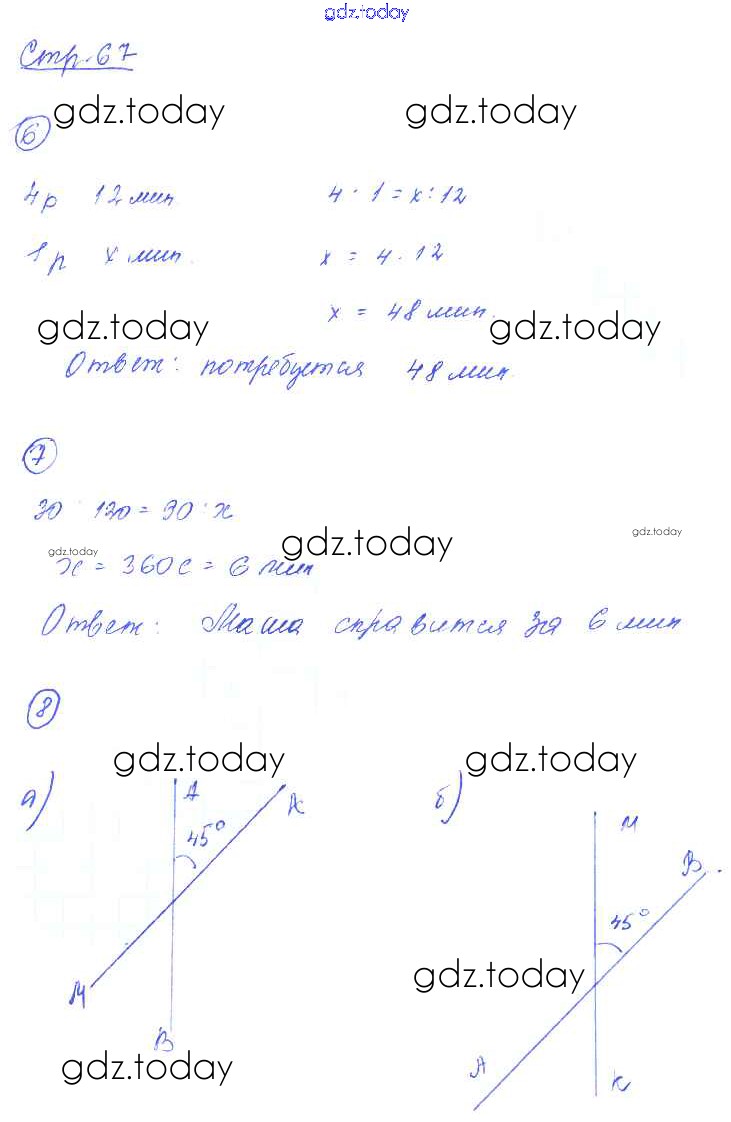 gdz.today
Стр. 67
gdz.today gdz.today
6
4р 12 мин 4 : 1 = x : 12
1р x мин. x = 4 · 12
x = 48 мин.
gdz.today gdz.today
Ответ: потребуется 48 мин.
7
30 : 120 = 90 : x
gdz.today gdz.today gdz.today
x = 360с = 6 мин
Ответ: Маша справится за 6 мин
8
gdz.today gdz.today
а) A K 45° M B
б) M B 45° A K
gdz.today
gdz.today